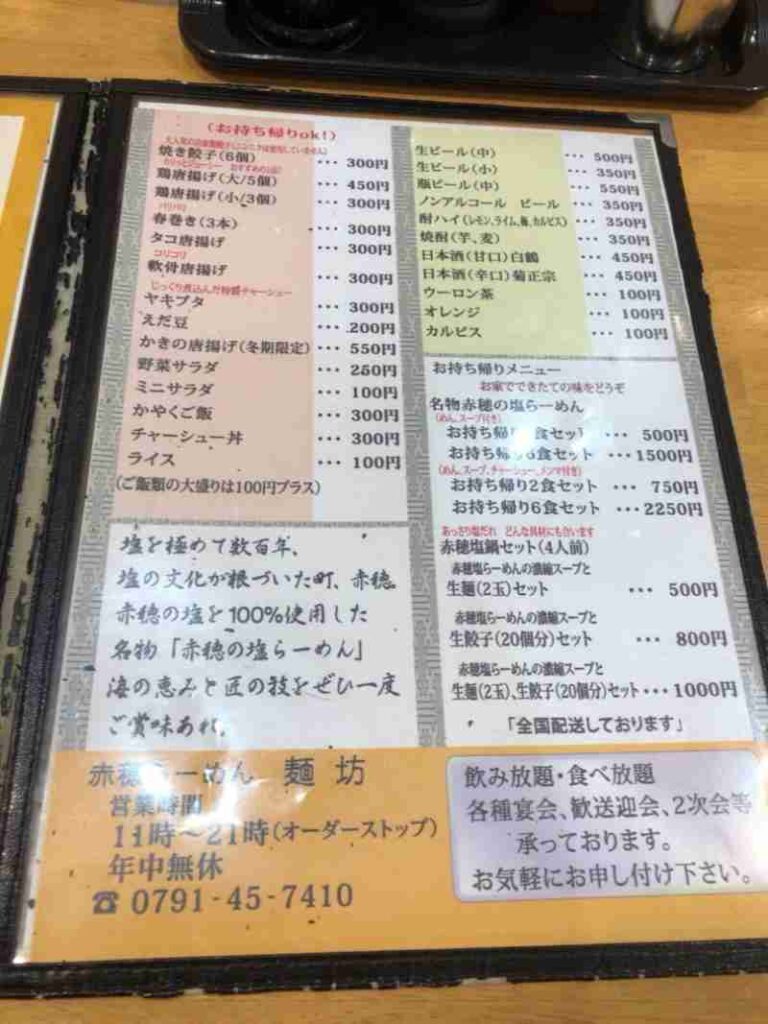 (お持ち帰りok!)
焼き餃子(6個) ・・・ 300円
鶏唐揚げ(大/5個) ・・・ 450円
鶏唐揚げ(小/3個) ・・・ 300円
パリパリ
春巻き(3本) ・・・ 300円
タコ唐揚げ ・・・ 300円
コリコリ
軟骨唐揚げ ・・・ 300円
じっくり煮込んだ特製チャーシュー
ヤキブタ ・・・ 300円
えだ豆 ・・・ 200円
かきの唐揚げ(冬期限定) ・・・ 550円
野菜サラダ ・・・ 250円
ミニサラダ ・・・ 100円
かやくご飯 ・・・ 300円
チャーシュー丼 ・・・ 300円
ライス ・・・ 100円
(ご飯類の大盛りは100円プラス)
塩を極めて数百年、
塩の文化が根づいた町、赤穂
赤穂の塩を100%使用した
名物「赤穂の塩らーめん」
海の恵みと匠の技をぜひ一度
ご賞味あれ。
生ビール(中) ・・・ 500円
生ビール(小) ・・・ 350円
瓶ビール(中) ・・・ 550円
ノンアルコール ビール ・・・ 350円
酎ハイ(レモン、ライム、梅、カルピス) ・・・ 350円
焼酎(芋、麦) ・・・ 350円
日本酒(甘口)白鶴 ・・・ 450円
日本酒(辛口)菊正宗 ・・・ 450円
ウーロン茶 ・・・ 100円
オレンジ ・・・ 100円
カルピス ・・・ 100円
お持ち帰りメニュー
お家でできたての味をどうぞ
名物赤穂の塩らーめん
(めん、スープ付き)
お持ち帰り 食セット ・・・ 500円
お持ち帰り6食セット ・・・ 1500円
(めん、スープ、チャーシュー、メンマ付き)
お持ち帰り2食セット ・・・ 750円
お持ち帰り6食セット ・・・ 2250円
あっさり塩だれ どんな具材にも合います
赤穂塩鍋セット(4人前)
赤穂塩らーめんの濃縮スープと
生麺(2玉)セット ・・・ 500円
赤穂塩らーめんの濃縮スープと
生餃子(20個分)セット ・・・ 800円
赤穂塩らーめんの濃縮スープと
生麺(2玉)、生餃子(20個分)セット・・・1000円
「全国配送しております」
赤穂らーめん 麺坊
営業時間
11時〜21時(オーダーストップ)
年中無休
☎ 0791-45-7410
飲み放題・食べ放題
各種宴会、歓送迎会、2次会等
承っております。
お気軽にお申し付け下さい。